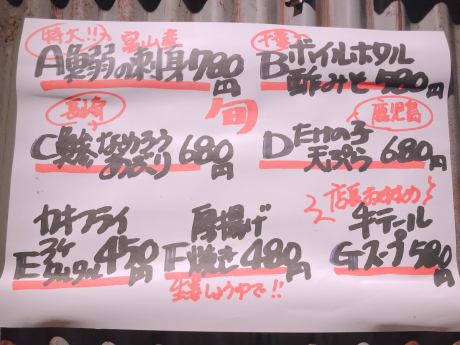 特大!! 富山産
A 鰯の刺身 780円
千葉
B ボイルホタル
酢みそ 580円
旬
長崎
C 鯵 なめろう
あぶり 680円
鹿児島
D たけの子
天ぷら 680円
カキフライ
E タルタル 450円
厚揚げ
F 焼き 480円
生姜しょうゆで!!
店長おすすめ
牛テール
G スープ 580円